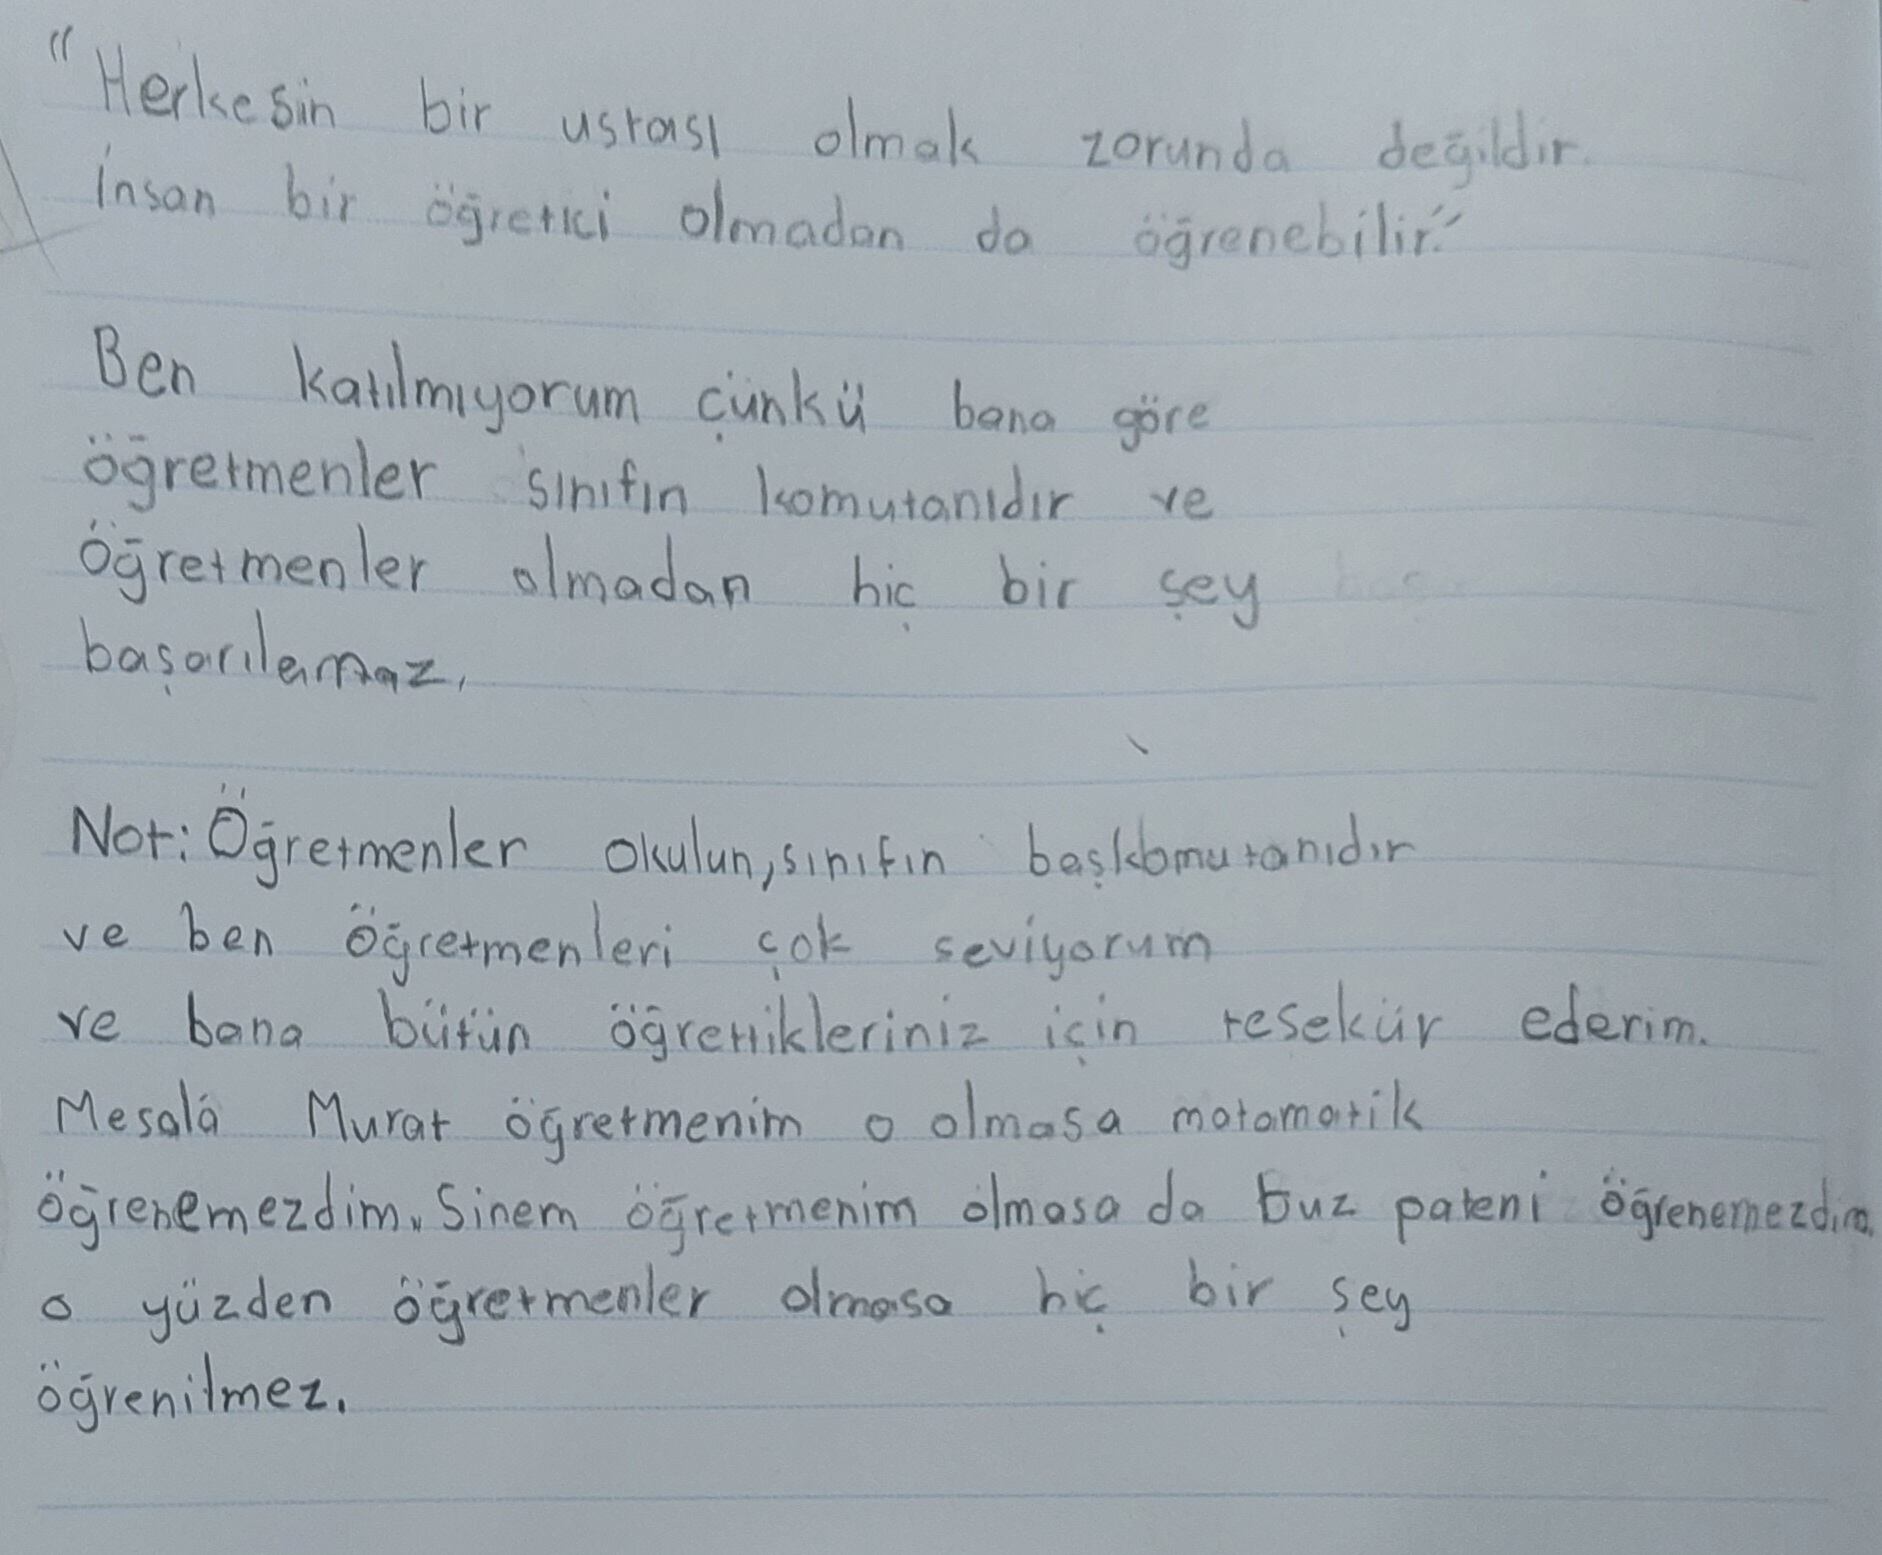 "Herkesin bir ustası olmak zorunda değildir.
İnsan bir öğretici olmadan da öğrenebilir."
Ben katılmıyorum çünkü bana göre
öğretmenler sınıfın komutanıdır ve
öğretmenler olmadan hiç bir şey
başarılamaz.
Not: Öğretmenler okulun, sınıfın başkomutanıdır
ve ben öğretmenleri çok seviyorum
ve bana bütün öğrettikleriniz için teseküür ederim.
Mesalâ Murat öğretmenim o olmasa matamatik
öğrenemezdim. Sinem öğretmenim olmasa da buz pateni öğrenemezdim.
o yüzden öğretmenler olmasa hiç bir şey
öğrenilmez.